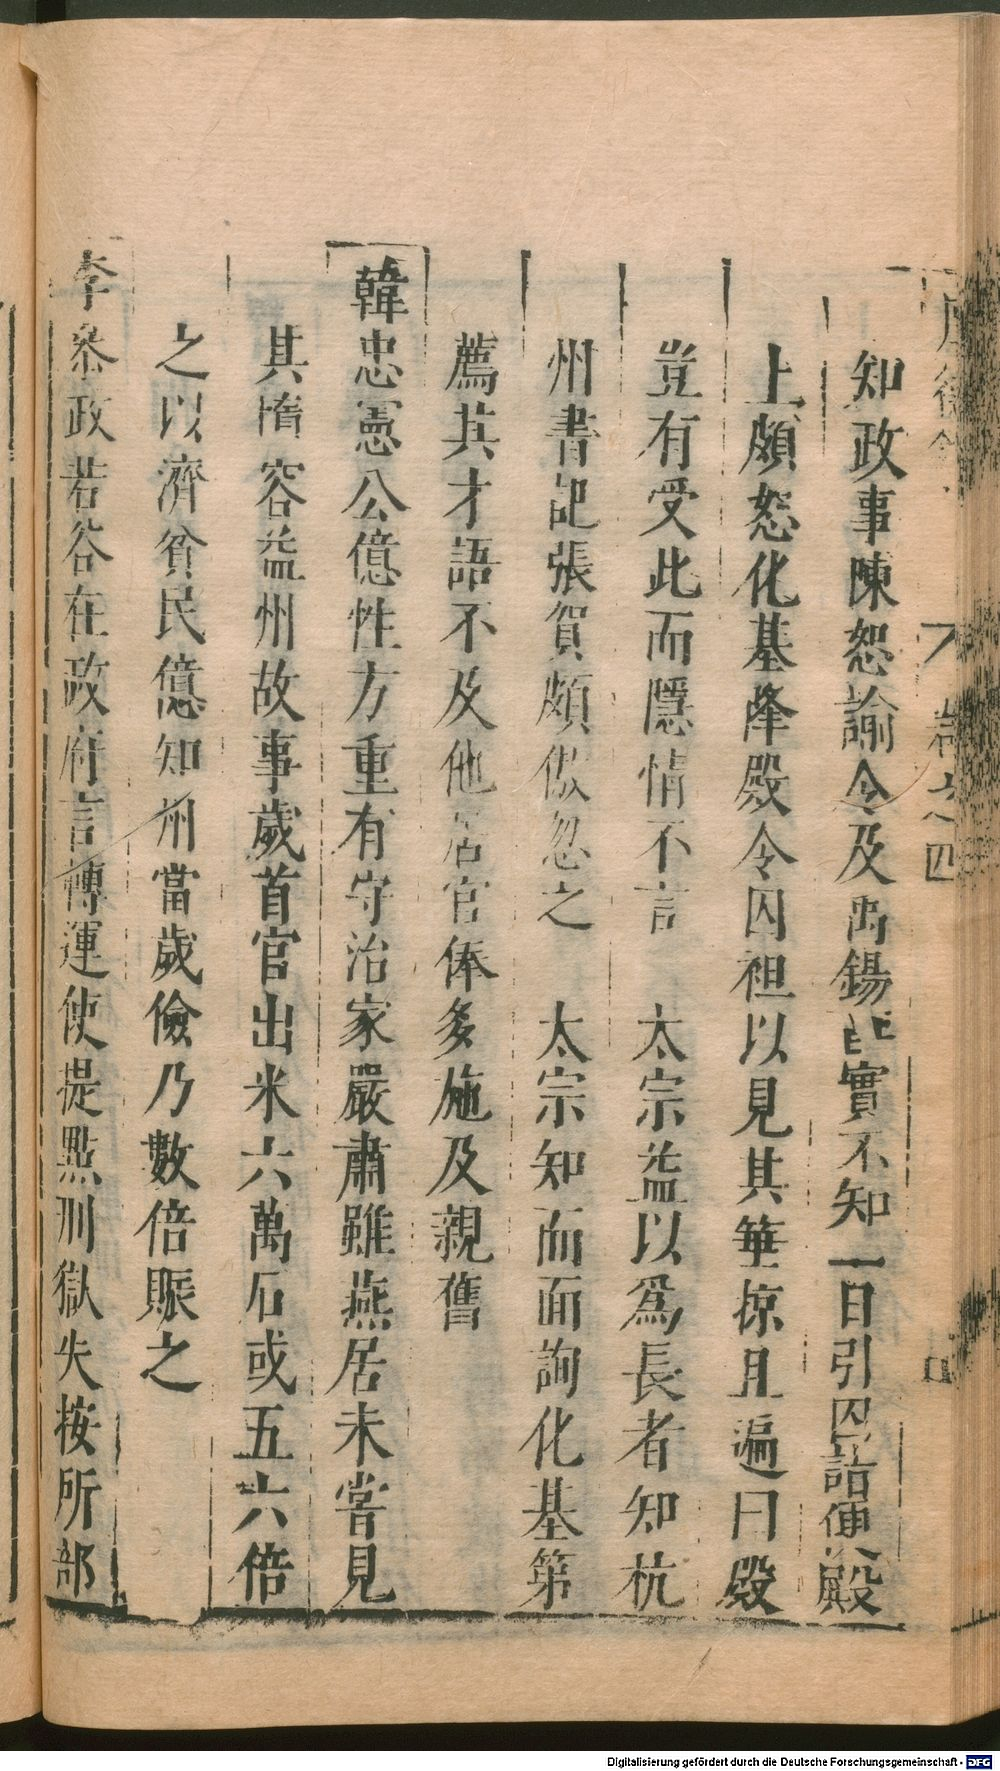 卷之四
知政事陳恕諭令及禹錫皆實不知一日引囚詣便殿
上頗怒化基降殿令囚袒以見其箠掠且遍曰殿
豈有受此而隱情不言 太宗益以爲長者知杭
州書記張賀頗傲忽之 太宗知而面詢化基第
薦其才語不及他居官俸多施及親舊
韓忠憲公億性方重有守治家嚴肅雖燕居未嘗見
其惰容益州故事歲首官出米六萬石或五六倍
之以濟貧民億知州當歲儉乃數倍賑之
李參政若谷在政府言轉運使提點刑獄失按所部
Digitalisierung gefördert durch die Deutsche Forschungsgemeinschaft - DFG